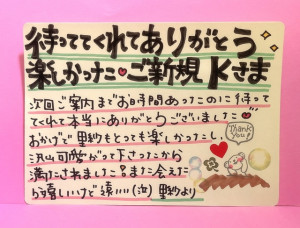 待っててくれてありがとう
楽しかったこ♥ご新規Kさま
次回ご案内までお時間あったのに待って
てくれて本当にありがとうございました♥
おかげで里紗もとっても楽しかったし、
沢山可愛がって下さったから
満たされました また会えた
ら嬉しいけど遠い(泣) 里紗より
Thank
You!